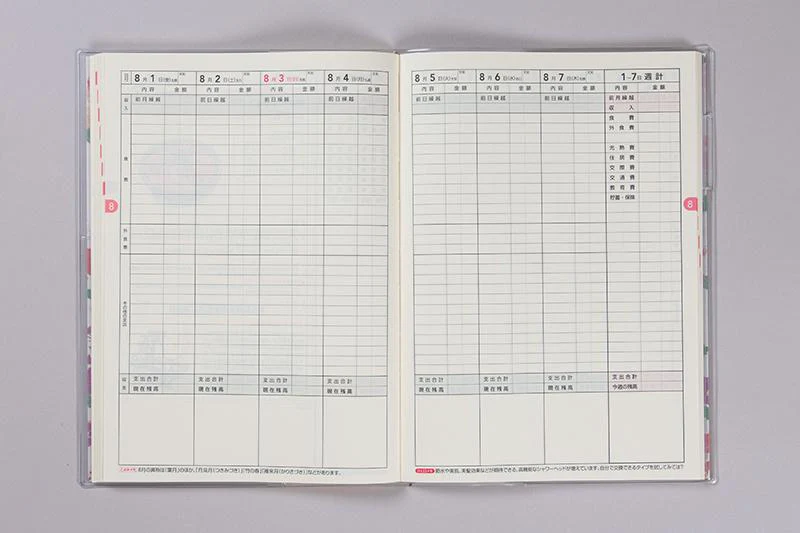 月
8月1日(金)
8月2日(土)
8月3
8月4日(月)
内容 金額 内容 金額 内容 金額 内容 金額
収入 前月繰越 前日繰越 前日繰越 前日繰越
食費
8
外食費
その他の支出
支出合計 支出合計 支出合計 支出合計
現在残高 現在残高 現在残高 現在残高
8月の異称は「葉月」のほか、「月見月(つきみづき)」「竹の春」「雁来月(かりきづき)」などがあります。
8月5日(火)
8月6日(水)
8月7日(木)
1~7日 週計
内容 金額 内容 金額 内容 金額 内容 金額
前日繰越 前日繰越 前日繰越 前月繰越
収入
食費
外食費
光熱費
住居費
交際費
交通費
教育費
貯蓄・保険
8
支出合計 支出合計 支出合計 支出合計
現在残高 現在残高 現在残高 今週の残高
節水や美肌、美髪効果などが期待できる、高機能なシャワーヘッドが増えています。自分で交換できるタイプを試してみては?